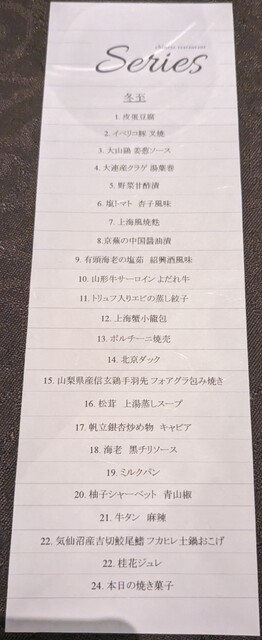 chinese restaurant
Series
冬至
1. 皮蛋豆腐
2. イベリコ豚 叉焼
3. 大山鶏 姜葱ソース
4. 大連産クラゲ 湯葉巻
5. 野菜甘酢漬
6. 塩トマト 杏子風味
7. 上海風焼麩
8. 京蕪の中国醤油漬
9. 有頭海老の塩茹 紹興酒風味
10. 山形牛サーロイン よだれ牛
11. トリュフ入りエビの蒸し餃子
12. 上海蟹小籠包
13. ポルチーニ焼売
14. 北京ダック
15. 山梨県産信玄鶏手羽先 フォアグラ包み焼き
16. 松茸 上湯蒸しスープ
17. 帆立銀杏炒め物 キャビア
18. 海老 黒チリソース
19. ミルクパン
20. 柚子シャーベット 青山椒
21. 牛タン 麻辣
22. 気仙沼産吉切鮫尾鰭 フカヒレ土鍋おこげ
22. 桂花ジュレ
24. 本日の焼き菓子